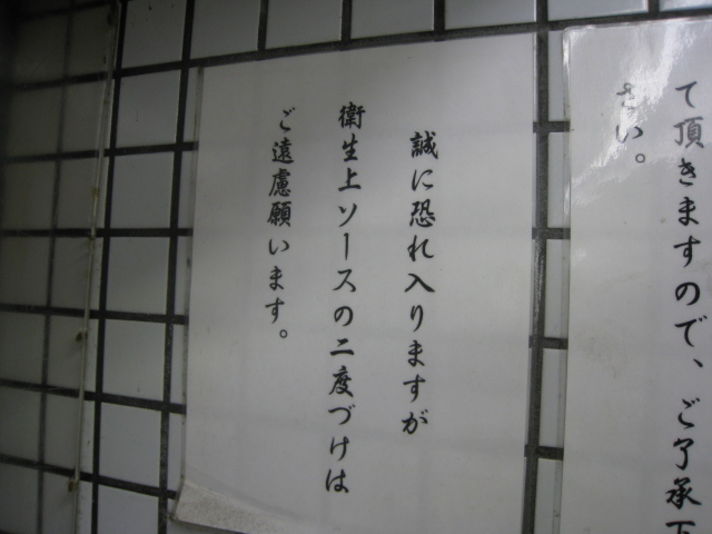 て頂きますので、ご了承下
さい。
誠に恐れ入りますが
衛生上ソースの二度づけは
ご遠慮願います。